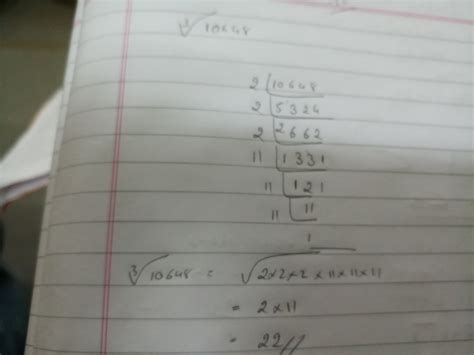 ∛10648
2 | 10648
2 | 5324
2 | 2662
11 | 1331
11 | 121
11 | 11
1
∛10648 = √2×2×2×11×11×11
= 2×11
= 22//